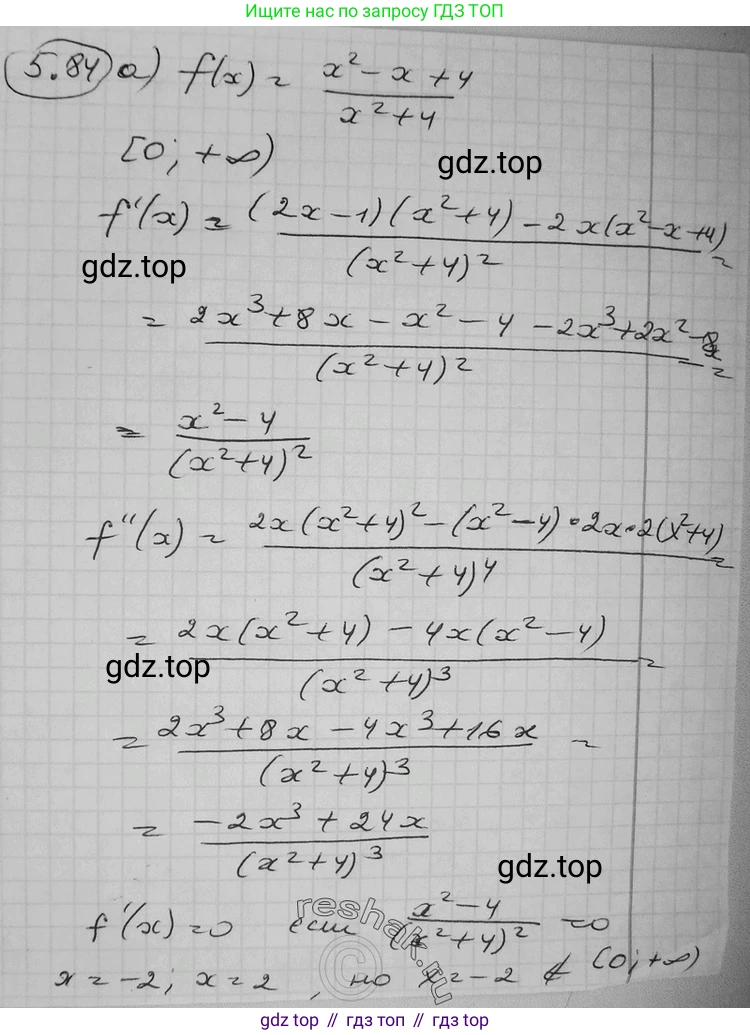 Ищите нас по запросу ГДЗ ТОП
5.84 а) f(x) = (x² - x + 4)/(x² + 4)
[0; +∞)
gdz.top
f'(x) = ((2x-1)(x²+4) - 2x(x²-x+4))/(x²+4)² =
gdz.top
= (2x³+8x - x² - 4 - 2x³ + 2x² - 8x)/(x²+4)² =
= (x² - 4)/(x²+4)²
f''(x) = (2x(x²+4)² - (x²-4)·2x·2(x²+4))/(x²+4)⁴ =
= (2x(x²+4) - 4x(x²-4))/(x²+4)³ =
gdz.top
= (2x³+8x - 4x³+16x)/(x²+4)³ =
= (-2x³ + 24x)/(x²+4)³
gdz.top
reshak.ru
f'(x)=0 если (x²-4)/(x²+4)² = 0
x = -2; x = 2, но x = -2 ∉ (0; +∞)
gdz top // гдз топ // gdz.top